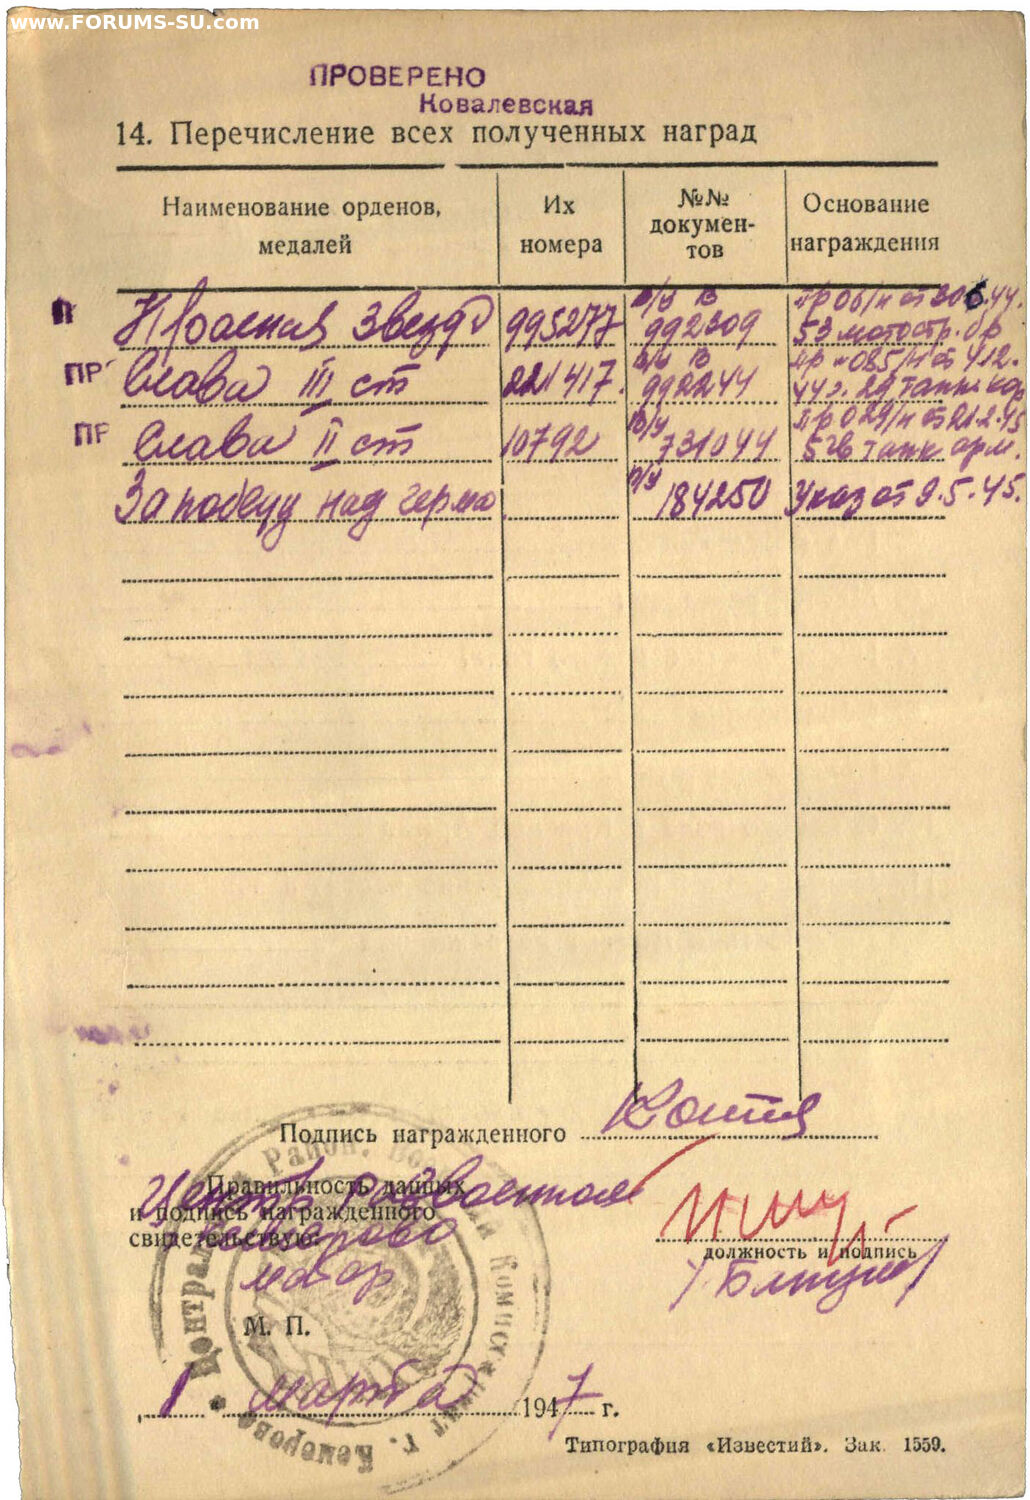 www.FORUMS-SU.com
ПРОВЕРЕНО
Ковалевская
14. Перечисление всех полученных наград
Наименование орденов, медалей
Их номера
№№ докумен- тов
Основание награждения
П Красная Звезда 995277 в/у В 992309 пр 06/н от 30.6.44. 53 мотостр. бр
ПР Слава III ст 221417. в/у В 992244 пр 085/н от 4.12. 44г. 29 танк кор
ПР Слава II ст 10792 в/у 731044 пр 029/н от 21.2.45 5 гв танк арм.
За победу над герма п/у 184250 Указ от 9.5.45.
Подпись награжденного
Правильность данных
и подпись награжденного
свидетельствую:
Центр райвоенком
Кемерово
майор
должность и подпись
М. П.
Центральный Район. Военный Комиссариат г. Кемерово
1 марта 1947 г.
Типография «Известий». Зак. 1559.